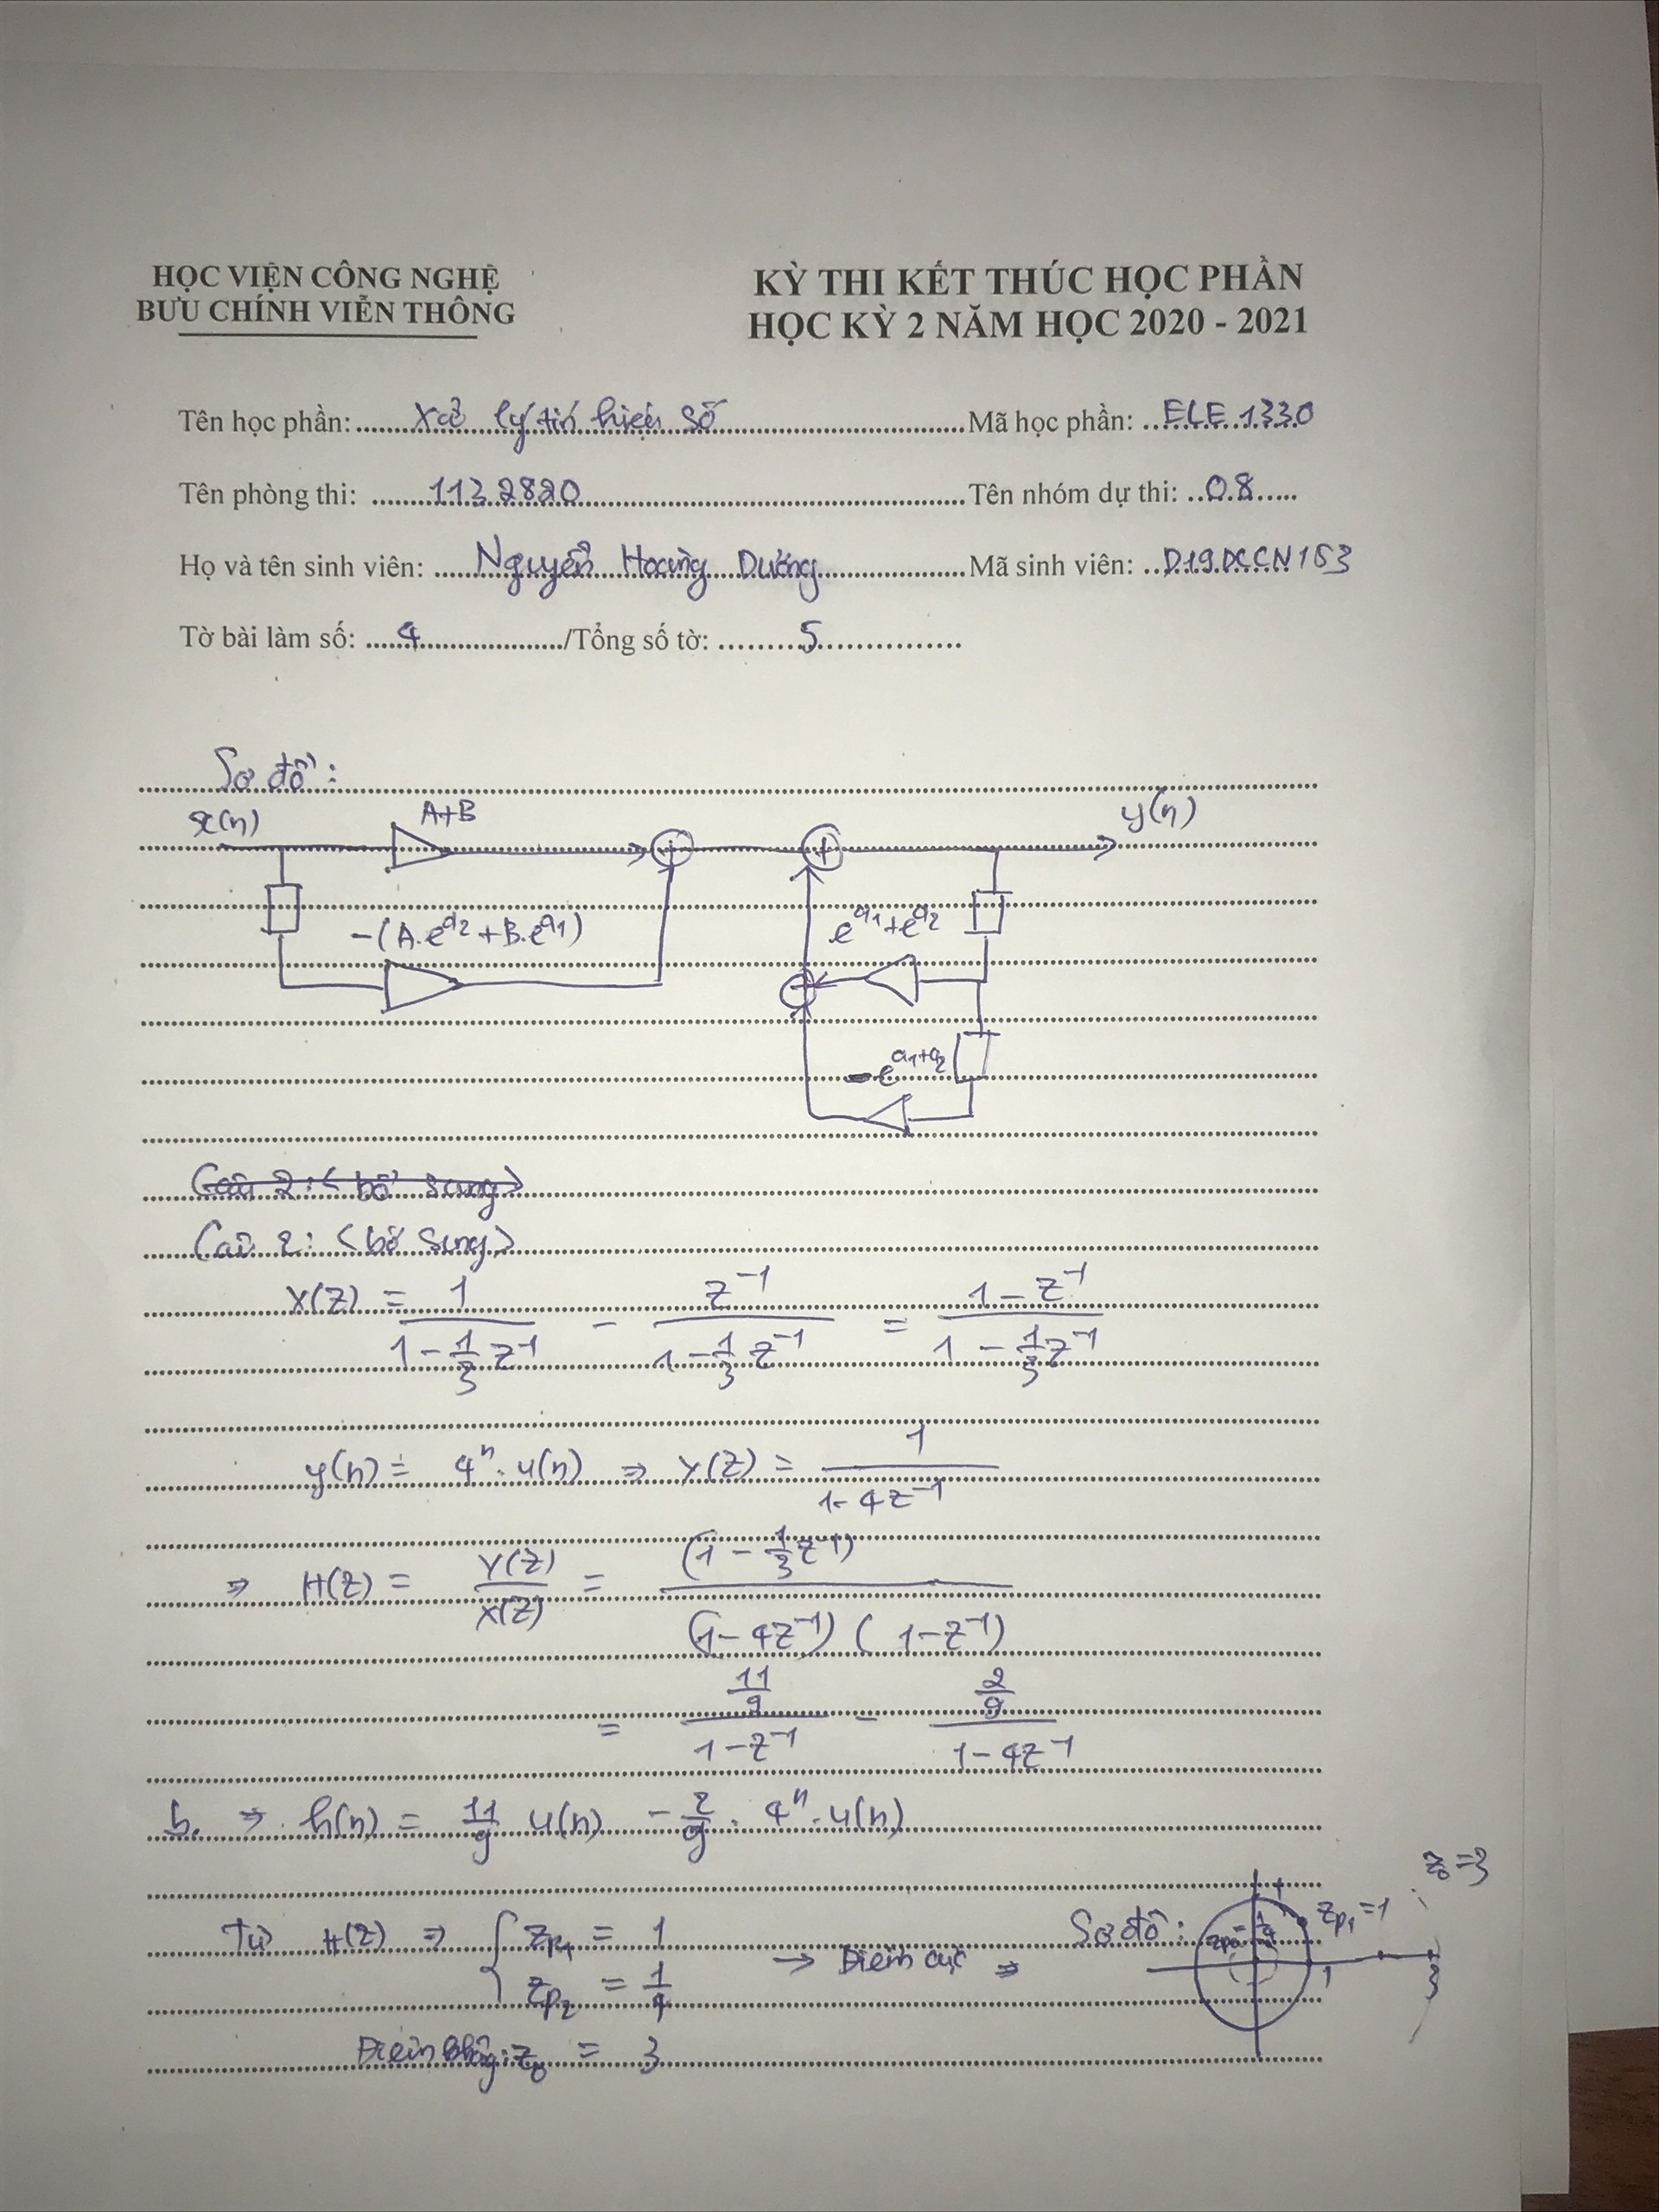 HỌC VIỆN CÔNG NGHỆ
BƯU CHÍNH VIỄN THÔNG
KỲ THI KẾT THÚC HỌC PHẦN
HỌC KỲ 2 NĂM HỌC 2020 - 2021
Tên học phần: Xử lý tín hiệu số Mã học phần: ELE 1330
Tên phòng thi: 1132820 Tên nhóm dự thi: 08
Họ và tên sinh viên: Nguyễn Hoàng Dương Mã sinh viên: D19DCCN163
Tờ bài làm số: 4 /Tổng số tờ: 5
Sơ đồ:
x(n) A+B y(n)
-(A.e^a2 + B.e^a1) e^a1 + e^a2
- e^(a1+a2)
Câu 2: (bổ sung)
Câu 2: (bổ sung)
X(Z) = 1/(1 - 1/3 z^-1) - z^-1/(1 - 1/3 z^-1) = (1 - z^-1)/(1 - 1/3 z^-1)
y(n) = 4^n . u(n) ⇒ Y(Z) = 1/(1 - 4z^-1)
⇒ H(Z) = Y(Z)/X(Z) = (1 - 1/3 z^-1)/((1 - 4z^-1)(1 - z^-1))
= (11/9)/(1 - z^-1) - (2/9)/(1 - 4z^-1)
b. ⇒ h(n) = 11/9 u(n) - 2/9 . 4^n . u(n)
Từ H(Z) ⇒ { zp1 = 1
zp2 = 1/4
→ Điểm cực ⇒ Sơ đồ: zp1 = 1 z0 = 3
1 3
Điểm không: z0 = 3